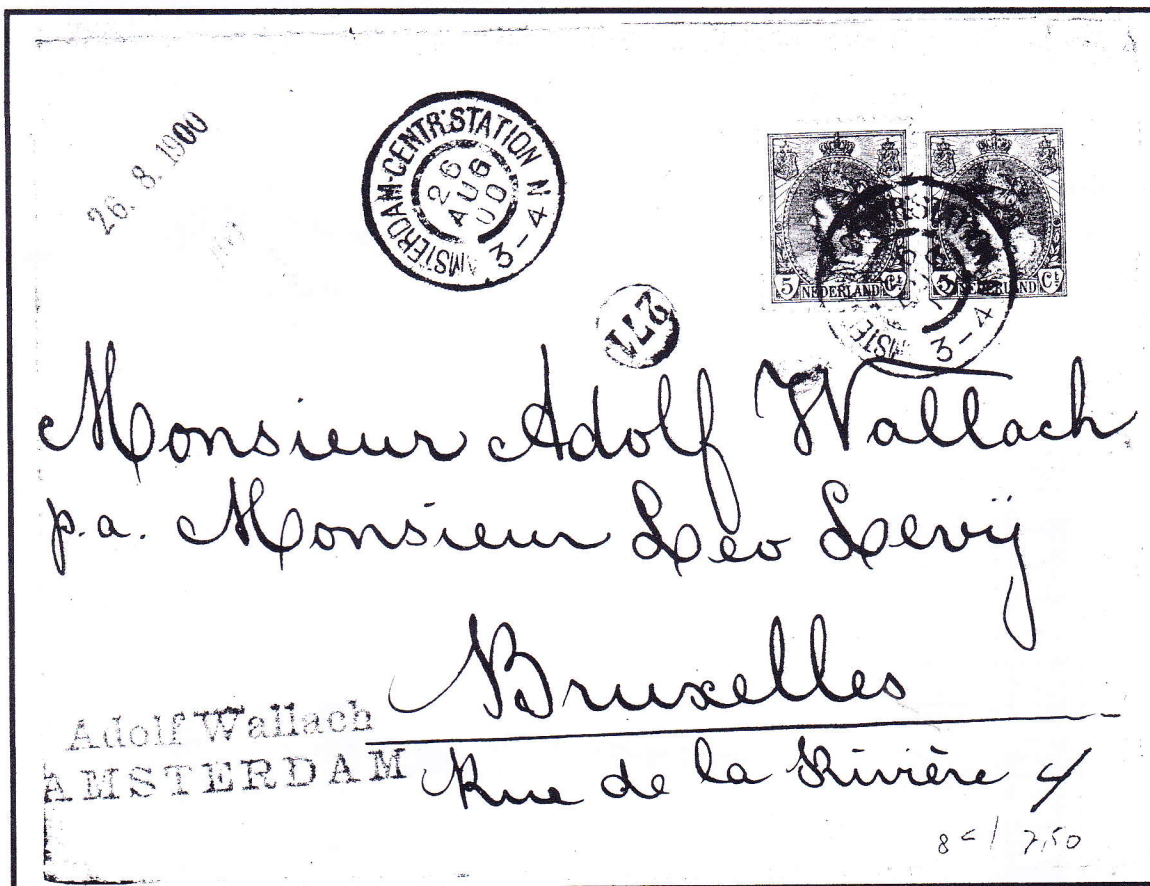 26. 8. 1900
AMSTERDAM-CENTR:STATION N
26
AUG
00
3-4
5 NEDERLAND Ct
5 NEDERLAND Ct
3-4
271
Monsieur Adolf Wallach
p.a. Monsieur Leo Levÿ
Bruxelles
Adolf Wallach
AMSTERDAM
Rue de la Rivière 4
7,50